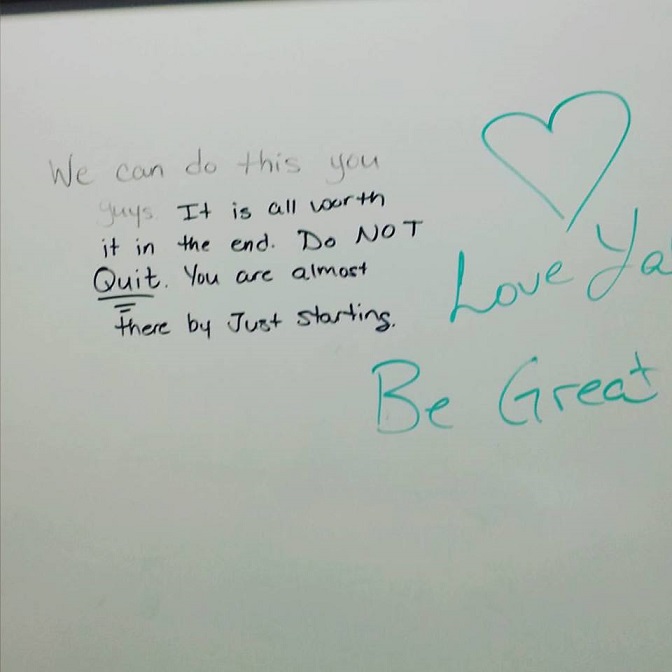 We can do this you
guys. It is all worth
it in the end. Do NOT
Quit. You are almost
there by Just starting.
Love Ya
Be Great